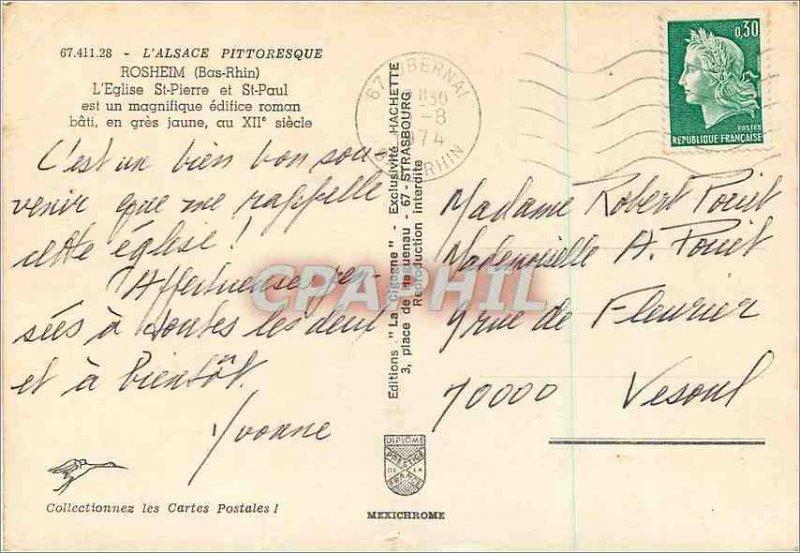 67.411.28 - L'ALSACE PITTORESQUE
ROSHEIM (Bas-Rhin)
L'Eglise St-Pierre et St-Paul
est un magnifique édifice roman
bâti, en grès jaune, au XIIe siècle
C'est un bien bon sou-
venir que me rappelle
cette église !
Affectueuses pen-
sées à toutes les deux
et à bientôt.
Yvonne
Collectionnez les Cartes Postales !
Editions "La Cigogne" - Exclusivité HACHETTE
3, place de Haguenau - 67 - STRASBOURG
Reproduction interdite
DIPLOME
PRESTIGE
DE LA
FRANCE
MEXICHROME
67 OBERNAI
830
-8
1974
RHIN
0,30
POSTES
REPUBLIQUE FRANÇAISE
Madame Robert Pouet
Mademoiselle A. Pouet
9 rue de Fleurier
70000 Vesoul
CPAPHIL